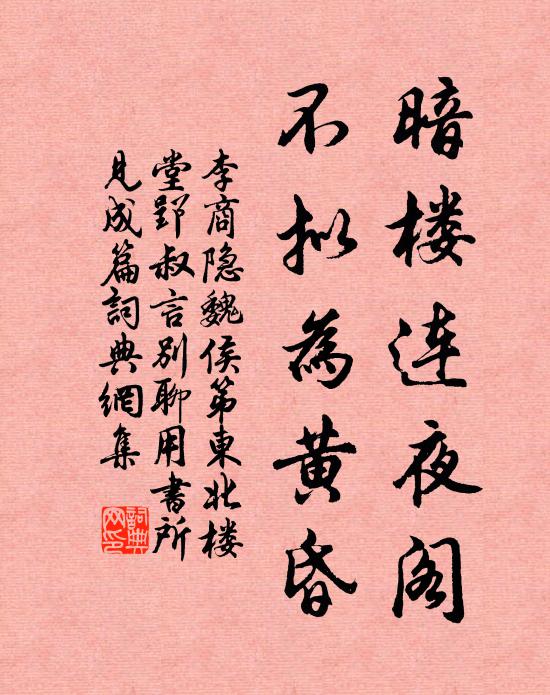 暗楼连夜阁
不拟为黄昏
李商隐魏侯第東北楼
堂郢叔言别聊用書所
见成篇詞典網集
詞典
网印